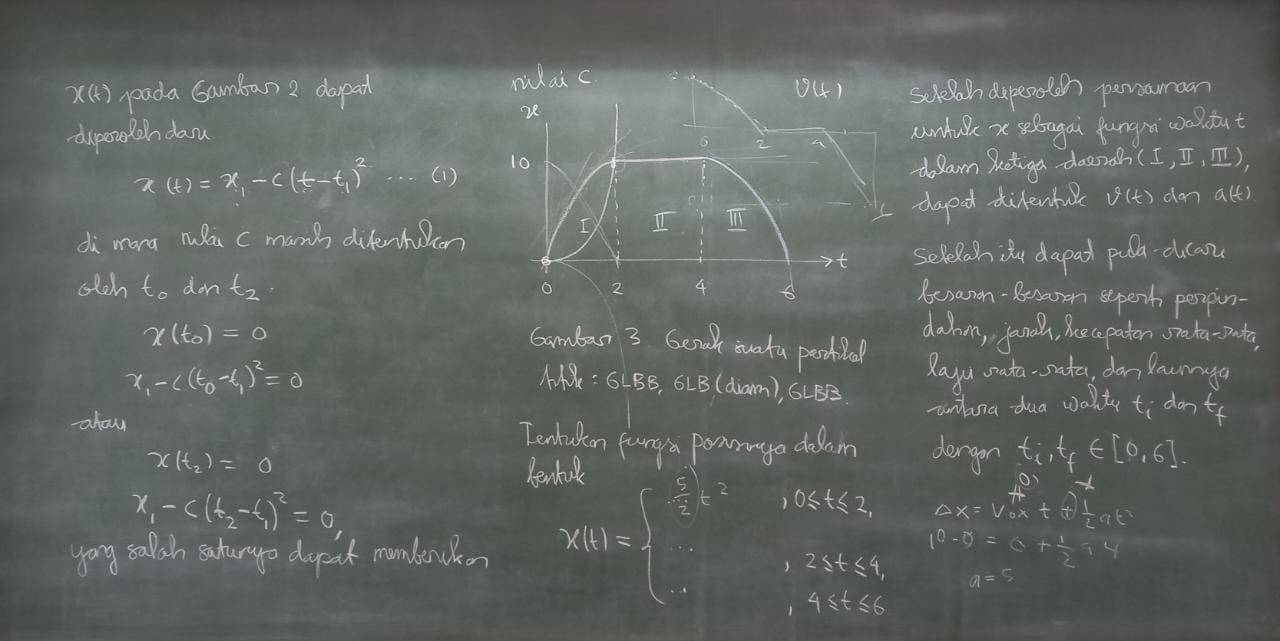 x(t) pada Gambar 2 dapat
diperoleh dari
x(t) = x₁ - c(t-t₁)² .... (1)
di mana nilai c masih ditentukan
oleh t₀ dan t₂.
x(t₀) = 0
x₁ - c(t₀-t₁)² = 0
atau
x(t₂) = 0
x₁ - c(t₂-t₁)² = 0,
yang salah satunya dapat memberikan
nilai c.
x
10
I II III
t
0 2 4 6
v(t)
6 2 4
Gambar 3. Gerak suatu partikel
titik : GLBB, GLB (diam), GLBB.
Tentukan fungsi posisinya dalam
bentuk
x(t) = {
5/2 t² , 0≤t≤2,
... , 2≤t≤4,
... , 4≤t≤6
Setelah diperoleh persamaan
untuk x sebagai fungsi waktu t
dalam ketiga daerah (I, II, III),
dapat ditentuk v(t) dan a(t).
Setelah itu dapat pula dicari
besaran-besaran seperti perpin-
dahan, jarak, kecepatan rata-rata,
laju rata-rata, dan lainnya
antara dua waktu tᵢ dan t_f
dengan tᵢ, t_f ∈ [0, 6].
Δx = v₀x t + ½ at²
10 - 0 = 0 + ½ a 4
a = 5